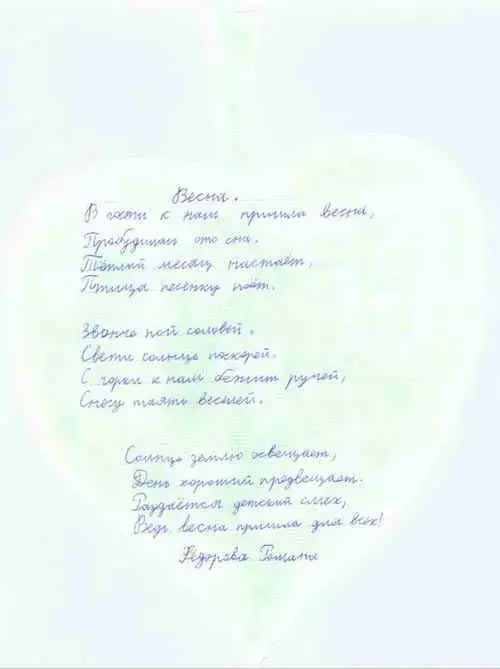 Весна.
В гости к нам пришла весна,
Пробудилась ото сна.
Тёплый месяц настаёт,
Птица песенку поёт.
Звонче пой соловей.
Свети солнце поскорей.
С горы к нам бежит ручей,
Снегу таять веселей.
Солнце землю освещает,
День хороший предвещает.
Раздаётся детский смех,
Ведь весна пришла для всех!
Фёдорова